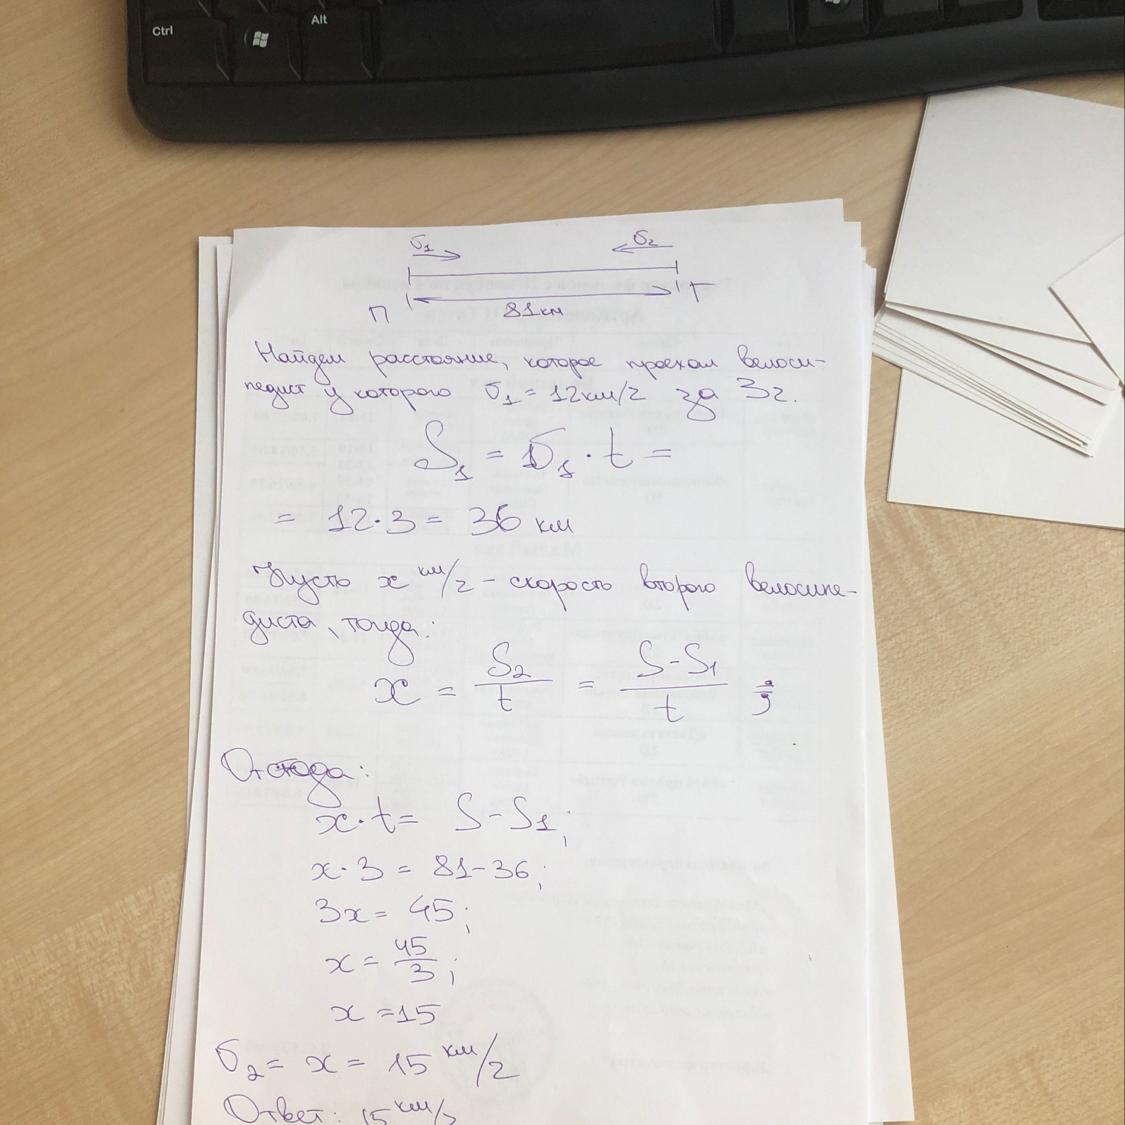 Ctrl
Alt
v1
v2
П
81км
Г
Найдем расстояние, которое проехал велоси-
педист у которого v1 = 12км/г за 3г.
S1 = v1 · t =
= 12·3 = 36 км
Пусть x км/г - скорость второго велосипе-
диста, тогда:
x = S2/t = S-S1/t ;
Отсюда:
x·t = S-S1;
x·3 = 81-36;
3x = 45;
x = 45/3;
x = 15
v2 = x = 15 км/г
Ответ: 15 км/г